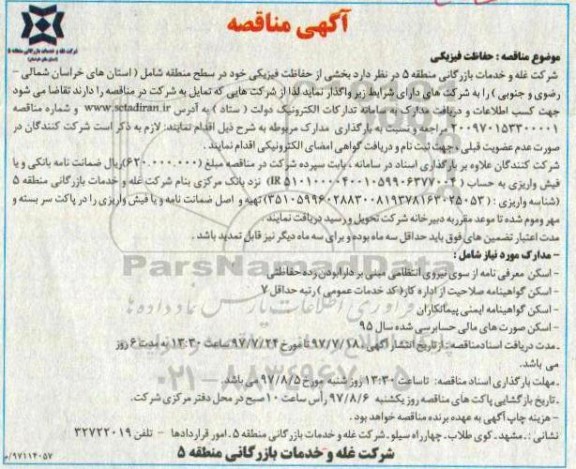 آگهی مناقصه
شرکت غله و خدمات بازرگانی منطقه ۵
موضوع مناقصه : حفاظت فیزیکی
شرکت غله و خدمات بازرگانی منطقه ۵ در نظر دارد بخشی از حفاظت فیزیکی خود در سطح منطقه شامل ( استان های خراسان شمالی –
رضوی و جنوبی ) را به شرکت های دارای شرایط زیر واگذار نماید لذا از شرکت هایی که تمایل به شرکت در مناقصه را دارند تقاضا می شود
جهت کسب اطلاعات و دریافت مدارک به سامانه تدارکات الکترونیک دولت ( ستاد ) به آدرس www.setadiran.ir و شماره مناقصه
۲۰۰۹۷۰۱۵۳۳۰۰۰۰۱ مراجعه و نسبت به بارگذاری مدارک مربوطه به شرح ذیل اقدام نمایند: لازم به ذکر است شرکت کنندگان در
صورت عدم عضویت قبلی ، جهت ثبت نام و دریافت گواهی امضای الکترونیکی اقدام نمایند .
شرکت کنندگان علاوه بر بارگذاری اسناد در سامانه ، بابت سپرده شرکت در مناقصه مبلغ (۶۲۰.۰۰۰.۰۰۰)ریال ضمانت نامه بانکی و یا
فیش واریزی به حساب ( IR ۵۱۰۱۰۰۰۰۴۰۰۱۰۵۹۹۰۶۳۷۷۰۰۴) نزد بانک مرکزی بنام شرکت غله و خدمات بازرگانی منطقه ۵
(شناسه واریزی : ۳۵۱۰۵۹۹۶۰۲۸۸۳۰۰۸۱۹۳۷۸۱۶۳۰۲۵۰۵۳) تهیه و اصل ضمانت نامه و یا فیش واریزی را در پاکت سر بسته و
مهر وموم شده تا موعد مقرر به دبیرخانه شرکت تحویل و رسید دریافت نمایند
مدت اعتبار تضمین های فوق باید حداقل سه ماه بوده و برای سه ماه دیگر نیز قابل تمدید باشد .
– مدارک مورد نیاز شامل :
– اسکن معرفی نامه از سوی نیروی انتظامی مبنی بر دارا بودن رده حفاظتی
– اسکن گواهینامه صلاحیت از اداره کار(کد خدمات عمومی ) رتبه حداقل ۷
– اسکن گواهینامه ایمنی پیمانکاران
– اسکن صورت های مالی حسابرسی شده سال ۹۵
. مدت دریافت اسنادمناقصه: از تاریخ انتشار آگهی ۹۷/۷/۱۸ تا مورخ ۹۷/۷/۲۴ ساعت ۱۳:۳۰ به مدت ۶ روز
می باشد.
. مهلت بارگذاری اسناد مناقصه: تاساعت ۱۳:۳۰ روز شنبه مورخ ۹۷/۸/۵ می باشد
. تاریخ بازگشایی پاکت های مناقصه روز یکشنبه ۹۷/۸/۶ رأس ساعت ۱۰ صبح در محل دفتر مرکزی شرکت.
– هزینه چاپ آگهی به عهده برنده مناقصه خواهد بود .
نشانی : . مشهد . کوی طلاب . چهارراه سیلو . شرکت غله و خدمات بازرگانی منطقه ۵ . امور قراردادها – تلفن ۳۲۷۲۲۰۱۹
شرکت غله و خدمات بازرگانی منطقه ۵
۹۷۱۱۴۰۵۷/م
ParsNamadData
۰۲۱-۸۸۳۴۹۶۷۰-۵